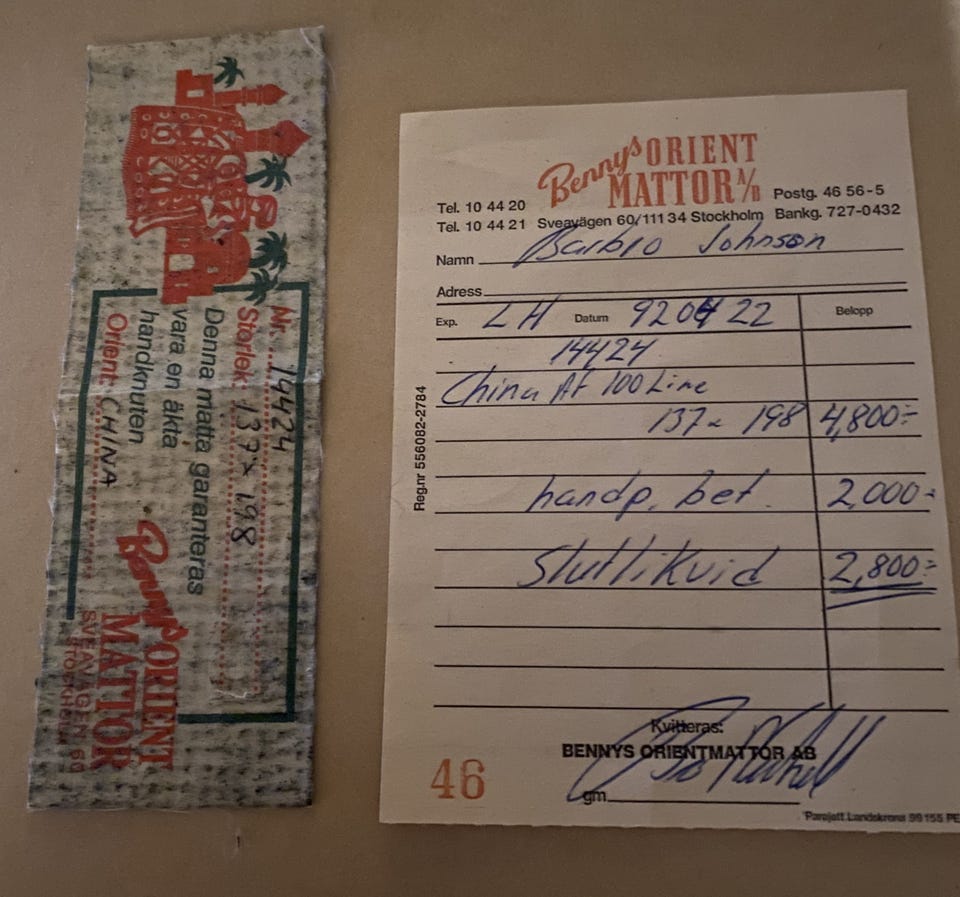 Nr. 14424
Storlek: 137 x 198
Denna matta garanteras
vara en äkta
handknuten
Orient: CHINA
Bennys ORIENT
MATTOR
SVEAVÄGEN 60
STOCKHOLM
Bennys ORIENT
MATTOR A/B
Tel. 10 44 20
Postg. 46 56-5
Tel. 10 44 21 Sveavägen 60/111 34 Stockholm Bankg. 727-0432
Namn Barbro Johnson
Adress
Exp. LH Datum 920422 Belopp
14424
China At 100 Line
137 x 198 4,800:-
handp. bet. 2,000-
Slutlikvid 2,800:-
Reg.nr 556082-2784
Kvitteras:
BENNYS ORIENTMATTOR AB
46
gm
Parajett Landskrona 99 155 PE